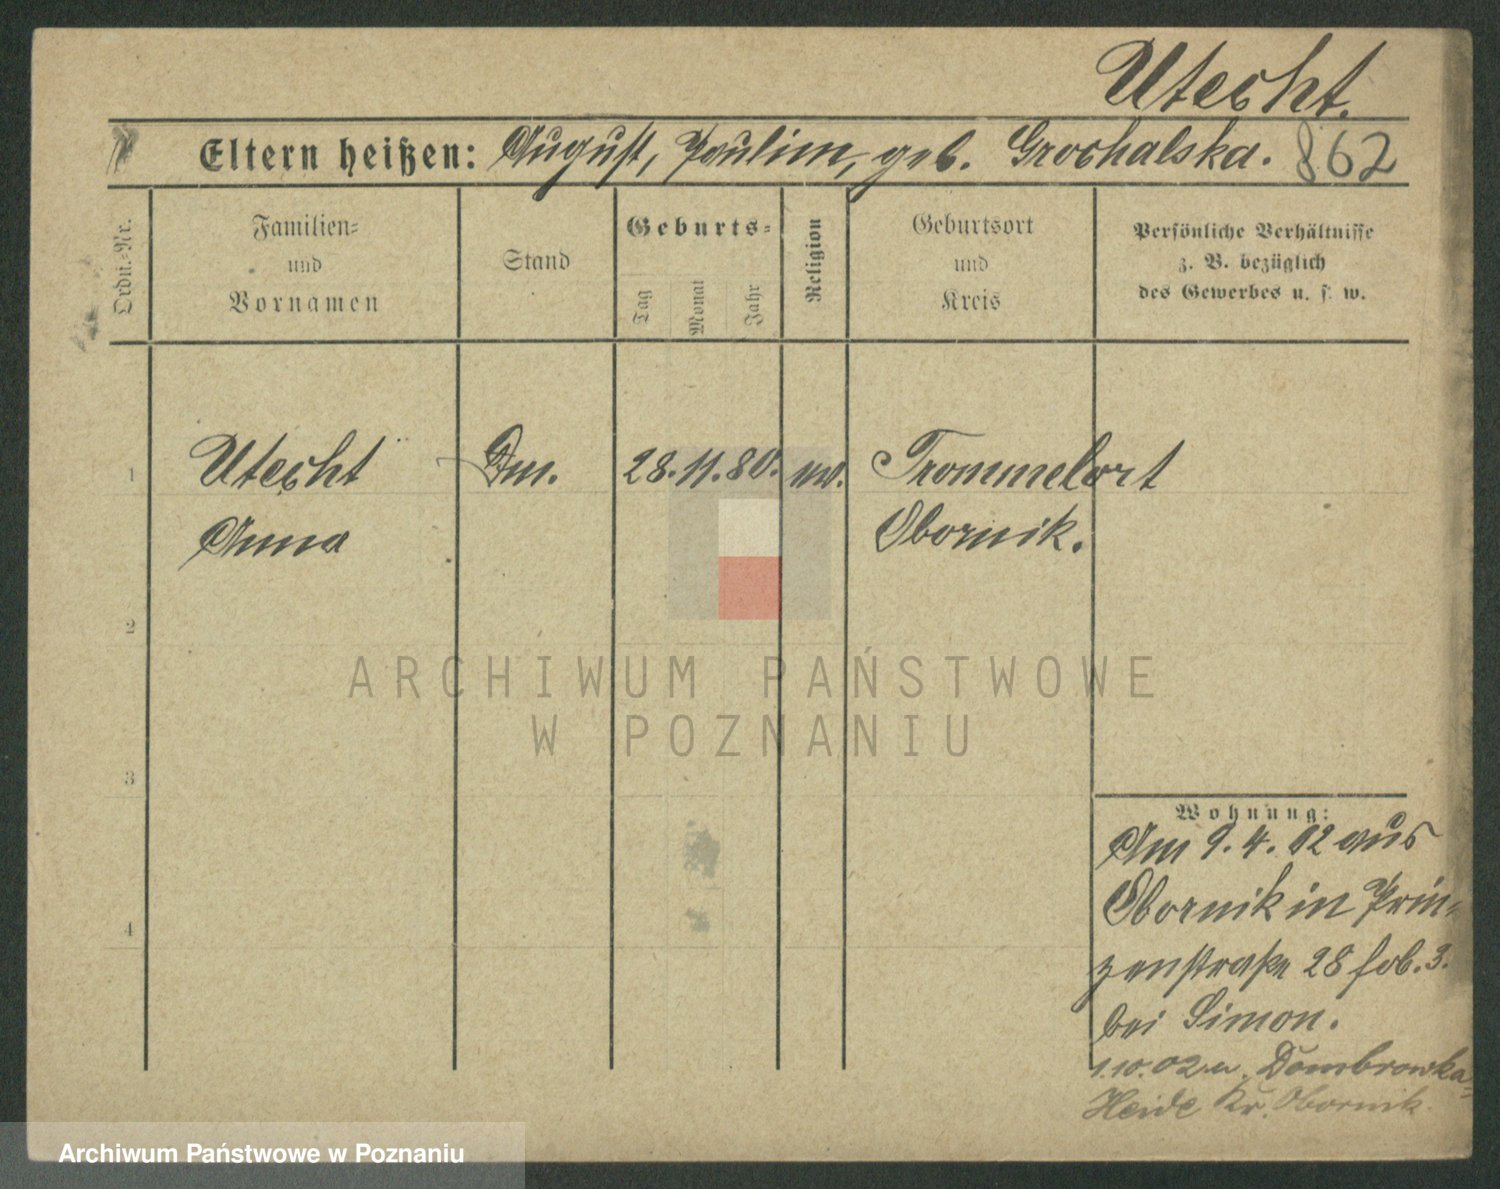 Utecht.
Eltern heißen: August, Paulim, geb. Grochalska. 862
Ordn.-Nr.
Familien-
und
Vornamen
Stand
Geburts-
Tag
Monat
Jahr
Religion
Geburtsort
und
Kreis
Persönliche Verhältnisse
z. B. bezüglich
des Gewerbes u. s. w.
1 Utecht Dm. 28. 11. 80. ev. Trommelort
Anna Obornik.
2
3
4
Wohnung:
Am 9. 4. 02 aus
Obornik in Prin-
zenstraße 28 b. 3.
bei Simon.
1.10.02 n. Dombrowka-
Heide Kr. Obornik.
ARCHIWUM PAŃSTWOWE
W POZNANIU
Archiwum Państwowe w Poznaniu